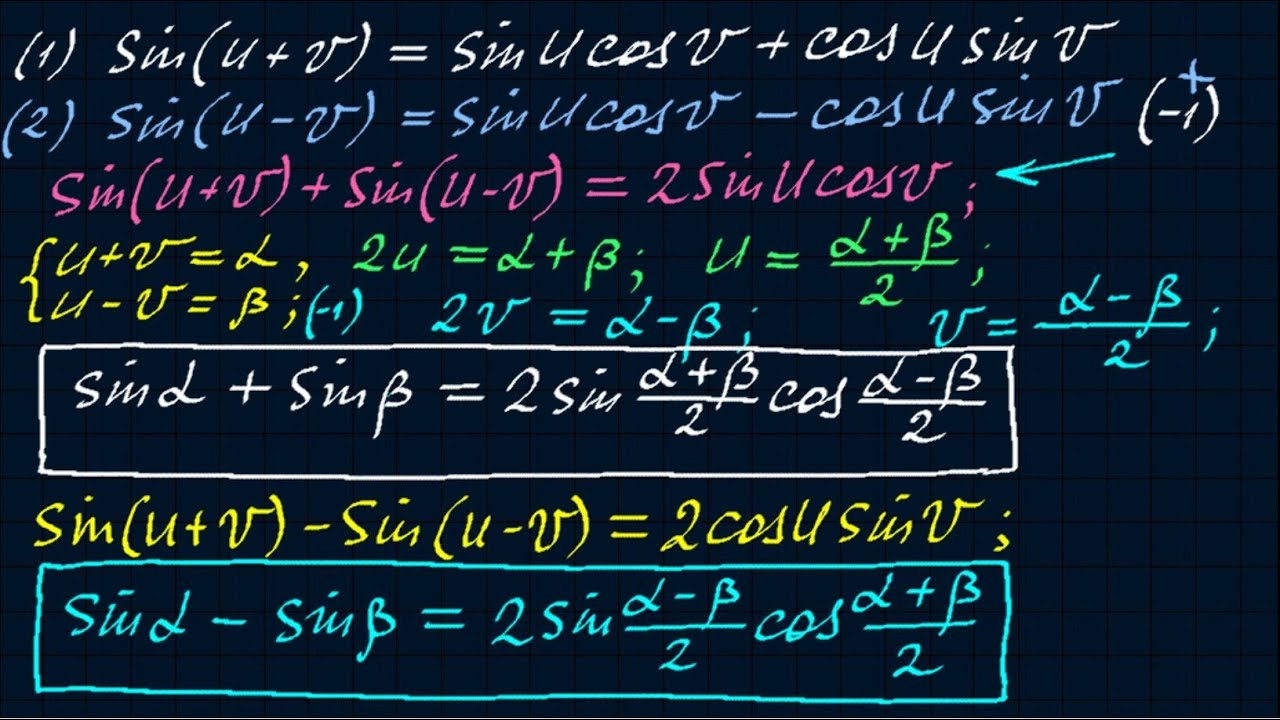 (1) sin(u+v) = sin u cos v + cos u sin v
(2) sin(u-v) = sin u cos v - cos u sin v (-1) +
sin(u+v) + sin(u-v) = 2 sin u cos v;
{ u+v = α, 2u = α+β; u = (α+β)/2;
u-v = β; (-1) 2v = α-β; v = (α-β)/2;
sin α + sin β = 2 sin (α+β)/2 cos (α-β)/2
sin(u+v) - sin(u-v) = 2 cos u sin v;
sin α - sin β = 2 sin (α-β)/2 cos (α+β)/2